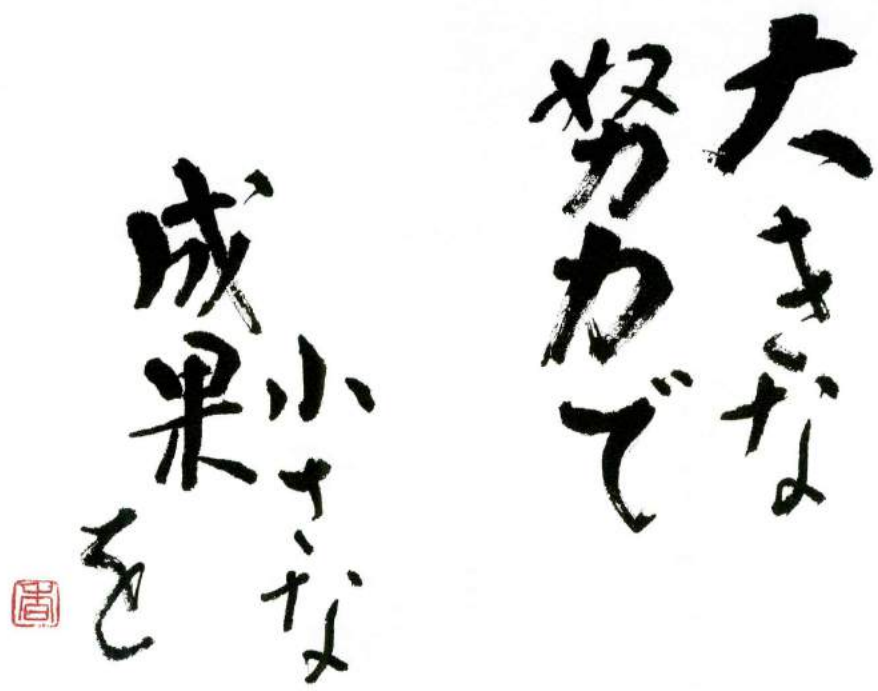 大きな
努力で
小さな
成果を